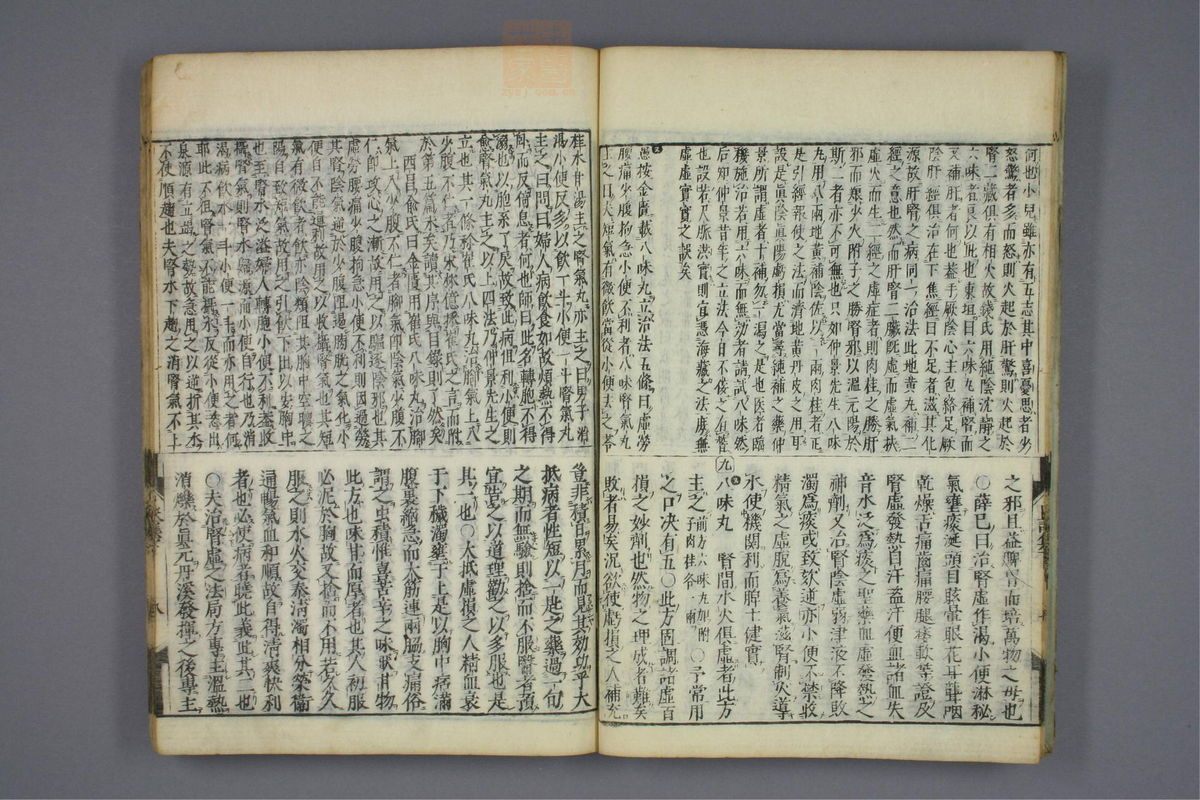 何也小兒雖亦有五志其中喜憂思者少
怒驚者多而怒則火起於肝驚則火起於
腎二臟俱有相火故錢氏用純陰沈靜之
味者良以此也東垣曰六味丸補腎而
又補肝者何也葢手厥陰心主包絡足厥
陰肝經俱治在下焦經曰不足者滋其化
源故肝腎之病同一治法此地黄丸補二
經之意也然而肝腎二臟既虛而虛氣挾
虛火而生二經之虛症者則肉桂之勝肝
邪而寒少火附子之勝腎邪以溫元陽於
斯二者亦不可無也只如仲景先生八味
丸用八兩地黄補陰佐以一兩肉桂者正
是引經報使之法而濟地黄丹皮之用耳
設是眞陰眞陽虧損尤當尋純補之藥仲
景所謂虛者十補勿一瀉之是也医者臨
機施治若用六味而無効者請試八味然
后知仲景昔年之立法今日不佞之有贅
也設若尺脈洪實則宜憑海藏之法度無
虛虛實實之誤矣
愚按金匱載八味丸立治法五條曰虛勞
腰痛少腹拘急小便不利者八味腎氣丸
主之曰夫短氣有微飲當從小便去之苓
之邪且益脾胃而培萬物之母也
○薛已曰治腎虛作渴小便淋秘
氣壅痰涎頭目眩暈眼花耳聾咽
乾燥舌痛齒痛腰腿痿軟等證及
腎虛發熱自汗盗汗便血諸血失
音水泛爲痰之聖藥血虛發熱之
神劑又治腎陰虛弱津液不降敗
濁爲痰或致欬逆亦小便不禁收
精氣之虛脫爲養氣滋腎制火導
水使機關利而脾土健實
九 八味丸 腎間水火俱虛者此方
主之 前方六味丸加附子肉桂各一兩 ○予常用
之口决有五○此方固調諸虛百
損之妙劑也然物之理成者難矣
敗者易矣况欲使虛損之人補充
桂朮甘湯主之腎氣丸亦主之曰男子消
渴小便反多以飲一斗小便一斗腎氣丸
主之曰問曰婦人病飲食如故煩熱不得
臥而反倚息者何也師曰此名轉胞不得
溺也以胞系了戾故致此病但利小便則
愈腎氣丸主之以上四法乃仲景先生之
立也其一條於崔氏八味丸治脚氣上入
少腹不仁者乃宋林億摭崔氏之言而附
於第五篇末矣讀其序與目錄則了然矣
西昌俞氏曰金匱用崔氏八味丸治脚
氣上入少腹不仁者脚氣即陰氣少腹不
仁即攻心之漸故用之以驅逐陰邪也其
虛勞腰痛少腹拘急小便不利則因過勞
其腎陰氣逆於少腹阻遏膀胱之氣化小
便自不能通利故用之以收攝腎氣也其短
氣有微飲者飲亦陰類阻其胸中空曠之
陽自致短氣故用之引飲下出以安胸中
也至腎水泛溢婦人轉胞小便不利葢收
攝腎氣則腎水歸源而小便自行也乃消
渴病飲水一斗小便一斗而亦用之者何
耶此不但腎氣不能攝水反從小便恣出
泉源有立竭之勢故急用之以逆折其水
不使順趨也夫腎水下趨之消腎氣不上
豈非積日累月而見其効功乎大
抵病者性短以一匙之藥過一旬
之期而無驗則捨而不服醫者預
宜告之以道理勸之以多服也是
其一也○大抵虛損之人精血衰
于下穢濁壅于上是以胸中痞滿
腹裏緧急而大筋連兩脇支痛俗
謂之虫積惟喜苦辛之味厭甘物
此方也味甘而厚者也其人初服
必泥於胸故又捨而不用若夫久
服之則水火交泰清濁相分榮衛
通暢氣血和順故自得清爽快利
者也必使病者曉此義此其二也
○夫治腎虛之法局方專主溫熱
消爍於眞元丹溪發揮之後專主